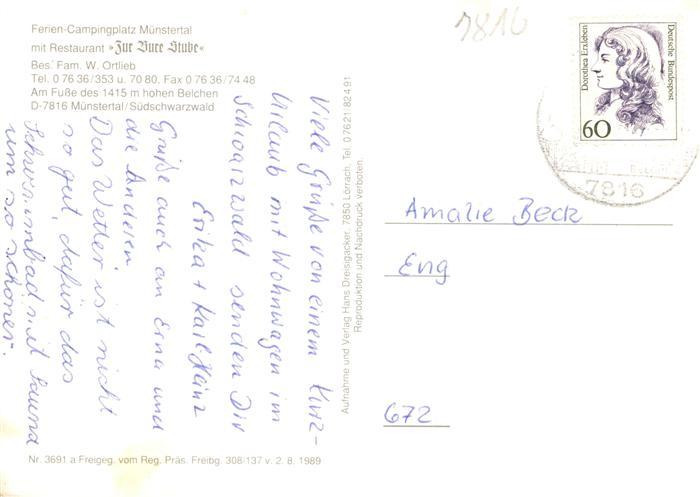 Ferien-Campingplatz Münstertal
mit Restaurant »Zur Bure Stube«
Bes. Fam. W. Ortlieb
Tel. 0 76 36/353 u. 70 80, Fax 0 76 36/74 48
Am Fuße des 1415 m hohen Belchen
D-7816 Münstertal/Südschwarzwald
Viele Grüße von einem Kurz-
Urlaub mit Wohnwagen im
Schwarzwald senden Dir
Erika + Karl-Heinz
Grüße auch an Erna und
die Anderen
Das Wetter ist nicht
so gut, dafür das
Schwimmbad mit Sauna
um so schöner.
Nr. 3691 a Freigeg. vom Reg. Präs. Freibg. 308/137 v. 2. 8. 1989
Aufnahme und Verlag Hans Dreisigacker, 7850 Lörrach, Tel. 0 76 21/8 24 91
Reproduktion und Nachdruck verboten.
7816
Dorothea Erxleben
Deutsche Bundespost
60
7816
Amalie Beck
Eng
672